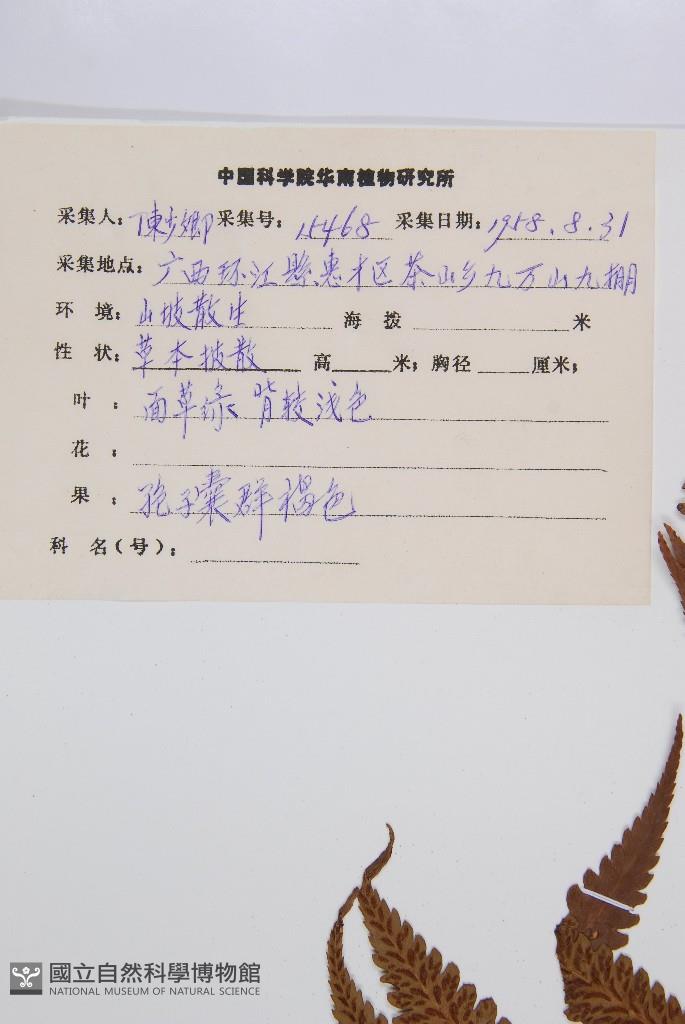 中国科学院华南植物研究所
采集人：陳少卿 采集号：15468 采集日期：1958.8.31
采集地点：广西环江縣惠才区茶山乡九万山九棚
环 境：山坡散生 海 拨 米
性 状：草本披散 高 米；胸径 厘米；
叶 ：面草绿 背較浅色
花 ：
果 ：孢子囊群褐色
科 名（号）：
國立自然科學博物館
NATIONAL MUSEUM OF NATURAL SCIENCE